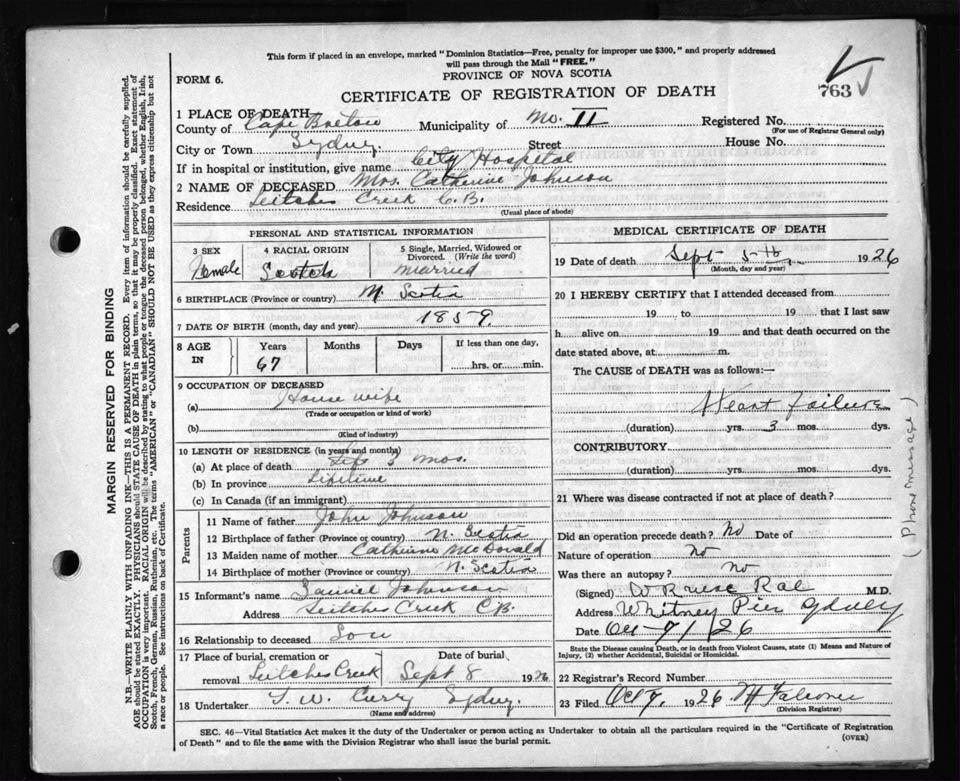 This form if placed in an envelope, marked "Dominion Statistics—Free, penalty for improper use $300," and properly addressed
will pass through the Mail "FREE."
FORM 6.
PROVINCE OF NOVA SCOTIA
CERTIFICATE OF REGISTRATION OF DEATH
763
1 PLACE OF DEATH
County of Cape Breton Municipality of No. 11 Registered No.
(For use of Registrar General only)
City or Town Sydney Street House No.
If in hospital or institution, give name City Hospital
2 NAME OF DECEASED Mrs. Catherine Johnson
Residence Leitches Creek C.B.
(Usual place of abode)
PERSONAL AND STATISTICAL INFORMATION
3 SEX Female
4 RACIAL ORIGIN Scotch
5 Single, Married, Widowed or Divorced. (Write the word) married
6 BIRTHPLACE (Province or country) N. Scotia
7 DATE OF BIRTH (month, day and year) 1859.
8 AGE IN Years 67 Months Days If less than one day, hrs. or min.
9 OCCUPATION OF DECEASED
(a) House wife
(Trade or occupation or kind of work)
(b)
(Kind of industry)
10 LENGTH OF RESIDENCE (in years and months)
(a) At place of death 3 mos.
(b) In province Lifetime
(c) In Canada (if an immigrant)
Parents
11 Name of father John Johnson
12 Birthplace of father (Province or country) N. Scotia
13 Maiden name of mother Catherine McDonald
14 Birthplace of mother (Province or country) N. Scotia
15 Informant's name Daniel Johnson
Address Leitches Creek C.B.
16 Relationship to deceased Son
17 Place of burial, cremation or removal Leitches Creek Date of burial Sept 8 1926
18 Undertaker T. W. Curry Sydney.
(Name and address)
MEDICAL CERTIFICATE OF DEATH
19 Date of death Sept 5th 1926
(Month, day and year)
20 I HEREBY CERTIFY that I attended deceased from
19 to 19 that I last saw
h alive on 19 and that death occurred on the
date stated above, at m.
The CAUSE of DEATH was as follows:—
Heart failure
(duration) yrs. 3 mos. dys.
CONTRIBUTORY.
(duration) yrs. mos. dys.
21 Where was disease contracted if not at place of death?
Did an operation precede death? No Date of
Nature of operation No
Was there an autopsy? No
(Signed) Rae M.D.
Address Whitney Pier Sydney
Date Oct 7/26
State the Disease causing Death, or in death from Violent Causes, state (1) Means and Nature of
Injury, (2) whether Accidental, Suicidal or Homicidal.
22 Registrar's Record Number
23 Filed Oct 7, 1926 Falconer
(Division Registrar)
(Phone message)
SEC. 46—Vital Statistics Act makes it the duty of the Undertaker or person acting as Undertaker to obtain all the particulars required in the "Certificate of Registration
of Death" and to file the same with the Division Registrar who shall issue the burial permit.
(OVER)
MARGIN RESERVED FOR BINDING
N.B.—WRITE PLAINLY WITH UNFADING INK—THIS IS A PERMANENT RECORD. Every item of information should be carefully supplied.
AGE should be stated EXACTLY. PHYSICIANS should STATE CAUSE OF DEATH in plain terms, so that it may be properly classified. Exact statement of
OCCUPATION is very important. RACIAL ORIGIN will be described by stating to what people or tongue the deceased person belonged, whether English, Irish,
Scotch, French, German, Russian, Ruthenian, etc. The terms "AMERICAN" or "CANADIAN" SHOULD NOT BE USED as they express citizenship but not
a race or people. See instructions on back of Certificate.